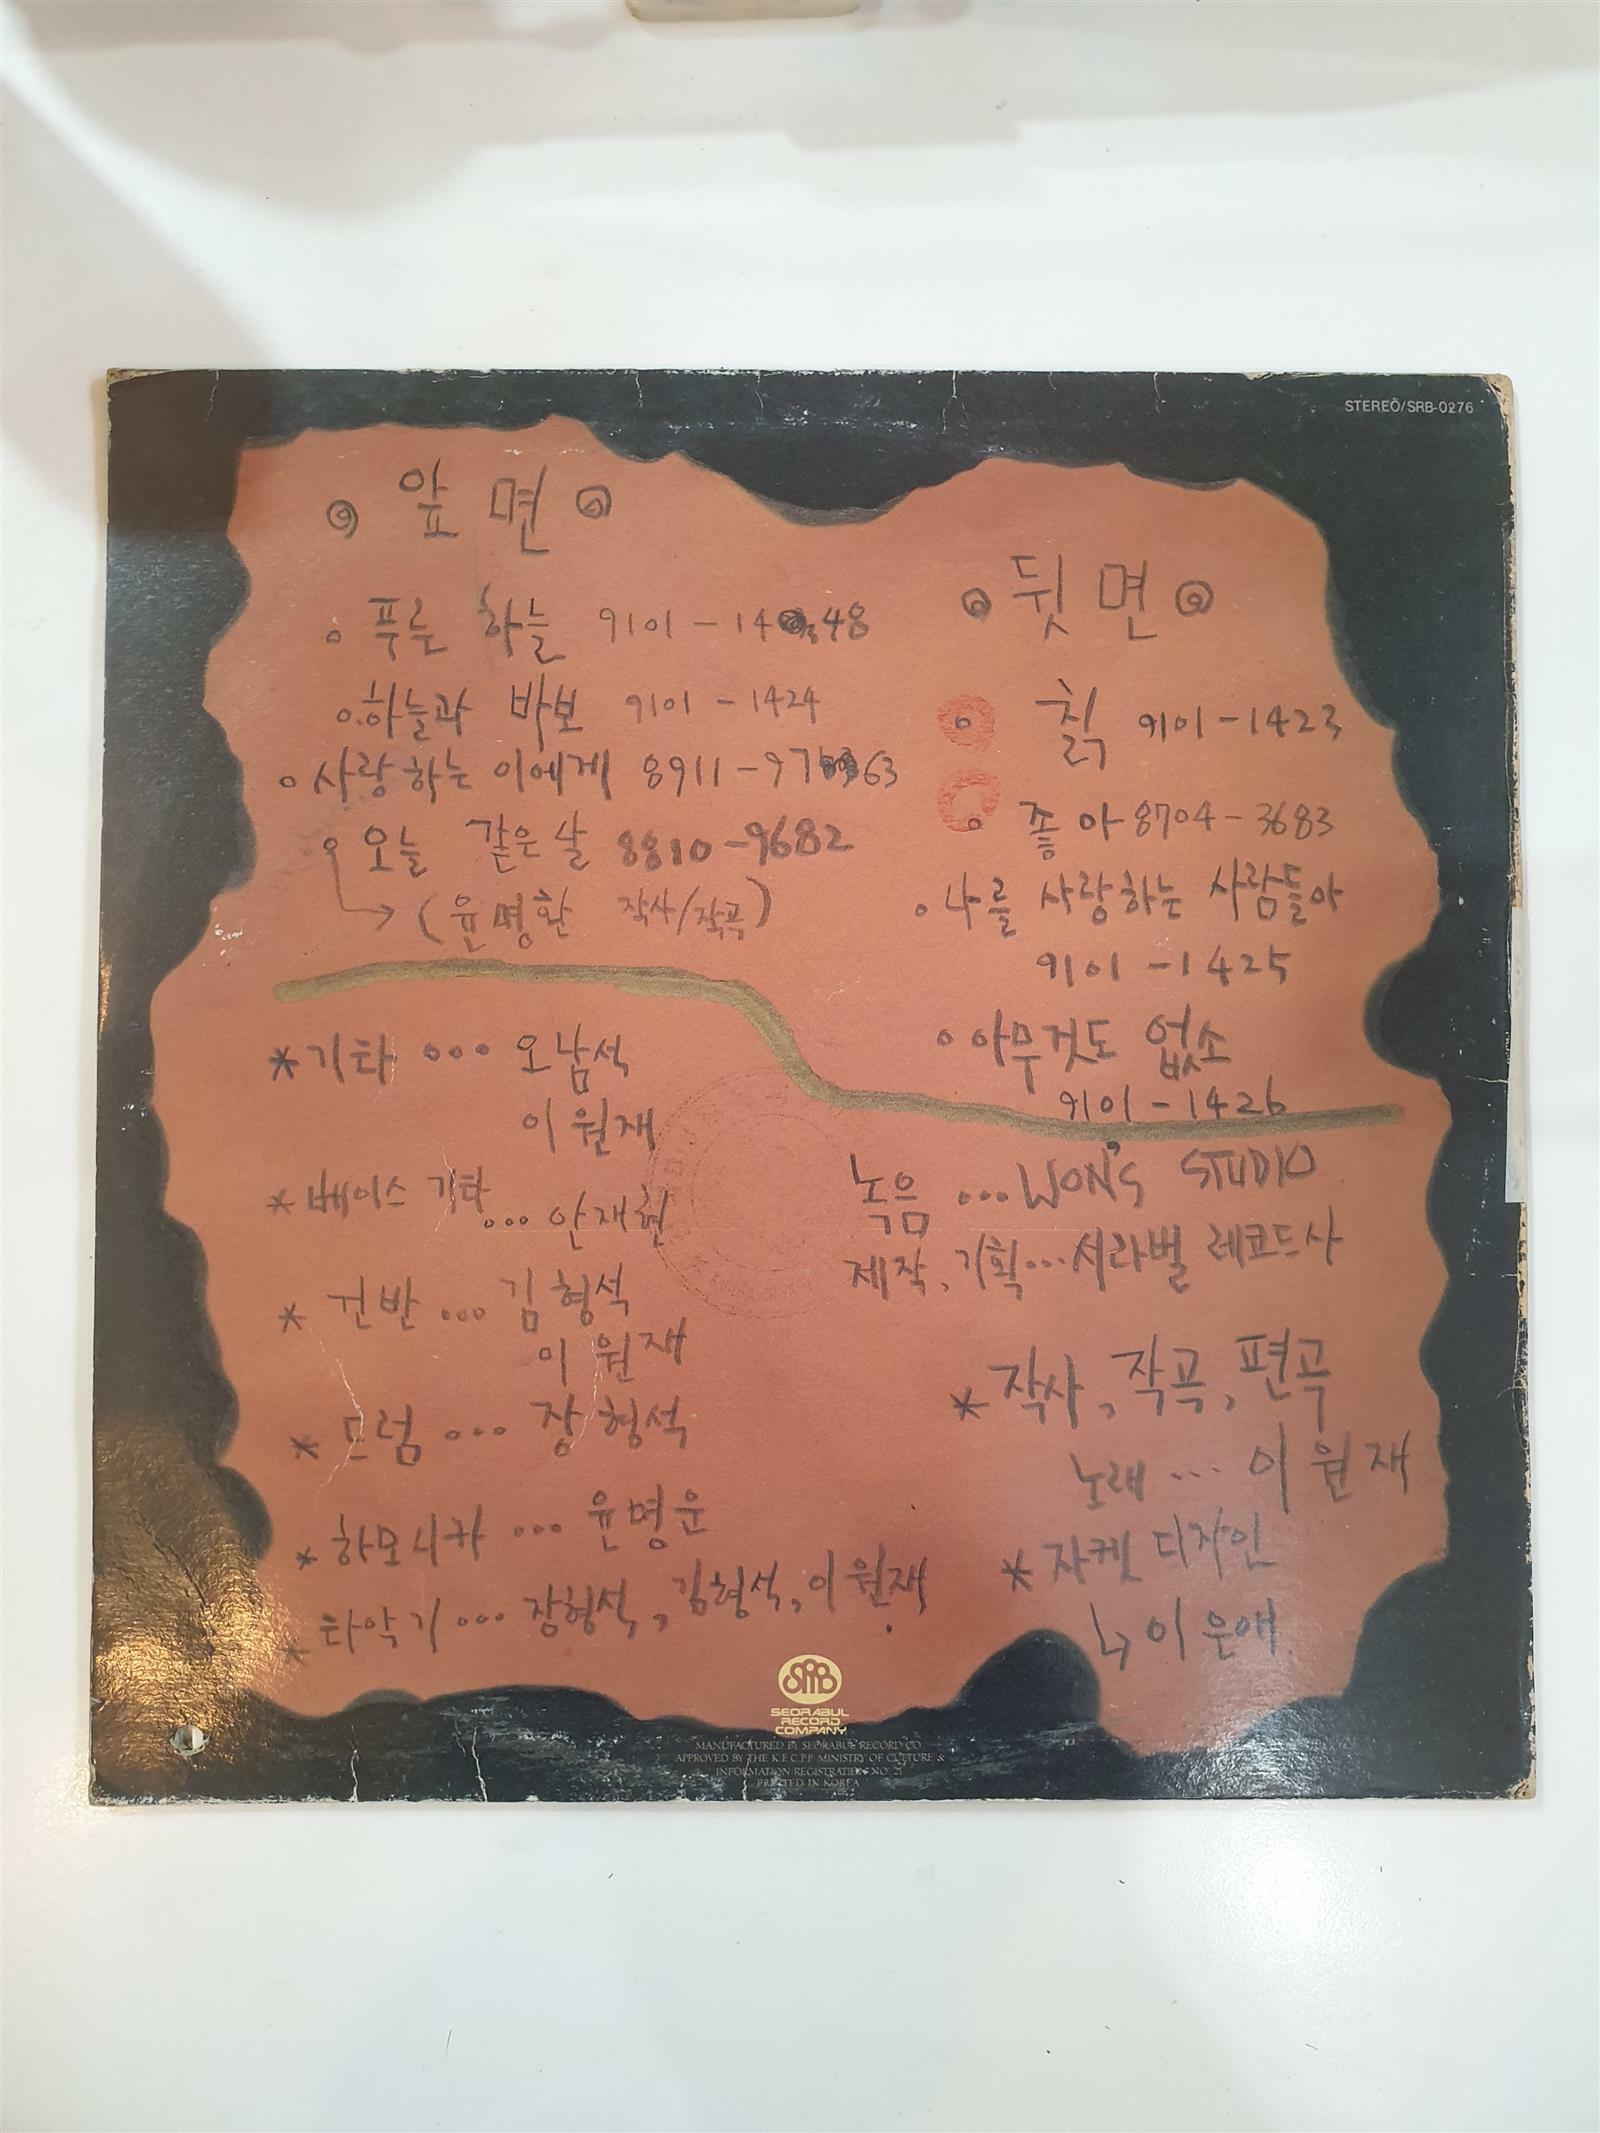 STEREO/SRB-0276
앞 면
푸른 하늘 9101-14 48
하늘과 바보 9101-1424
사랑하는 이에게 8911-97 63
오늘 같은 날 8810-9682
(윤명환 작사/작곡)
뒷 면
칡 9101-1423
좋아 8704-3683
나를 사랑하는 사람들아
9101-1425
아무것도 없소
9101-1426
* 기타 ... 오남석
이원재
* 베이스 기타
... 안재현
* 건반 ... 김형석
이원재
* 드럼 ... 장형석
* 하모니카 ... 윤명운
* 타악기 ... 장형석, 김형석, 이원재
녹음 ... WON'S STUDIO
제작, 기획 ... 서라벌 레코드사
* 작사, 작곡, 편곡
노래 ... 이원재
* 자켓 디자인
↳ 이은애
SRB
SEORABUL
RECORD
COMPANY
MANUFACTURED BY SEORABUL RECORD CO
APPROVED BY THE K.E.C.P.P. MINISTRY OF CULTURE &
INFORMATION REGISTRATION NO. 21
PRINTED IN KOREA